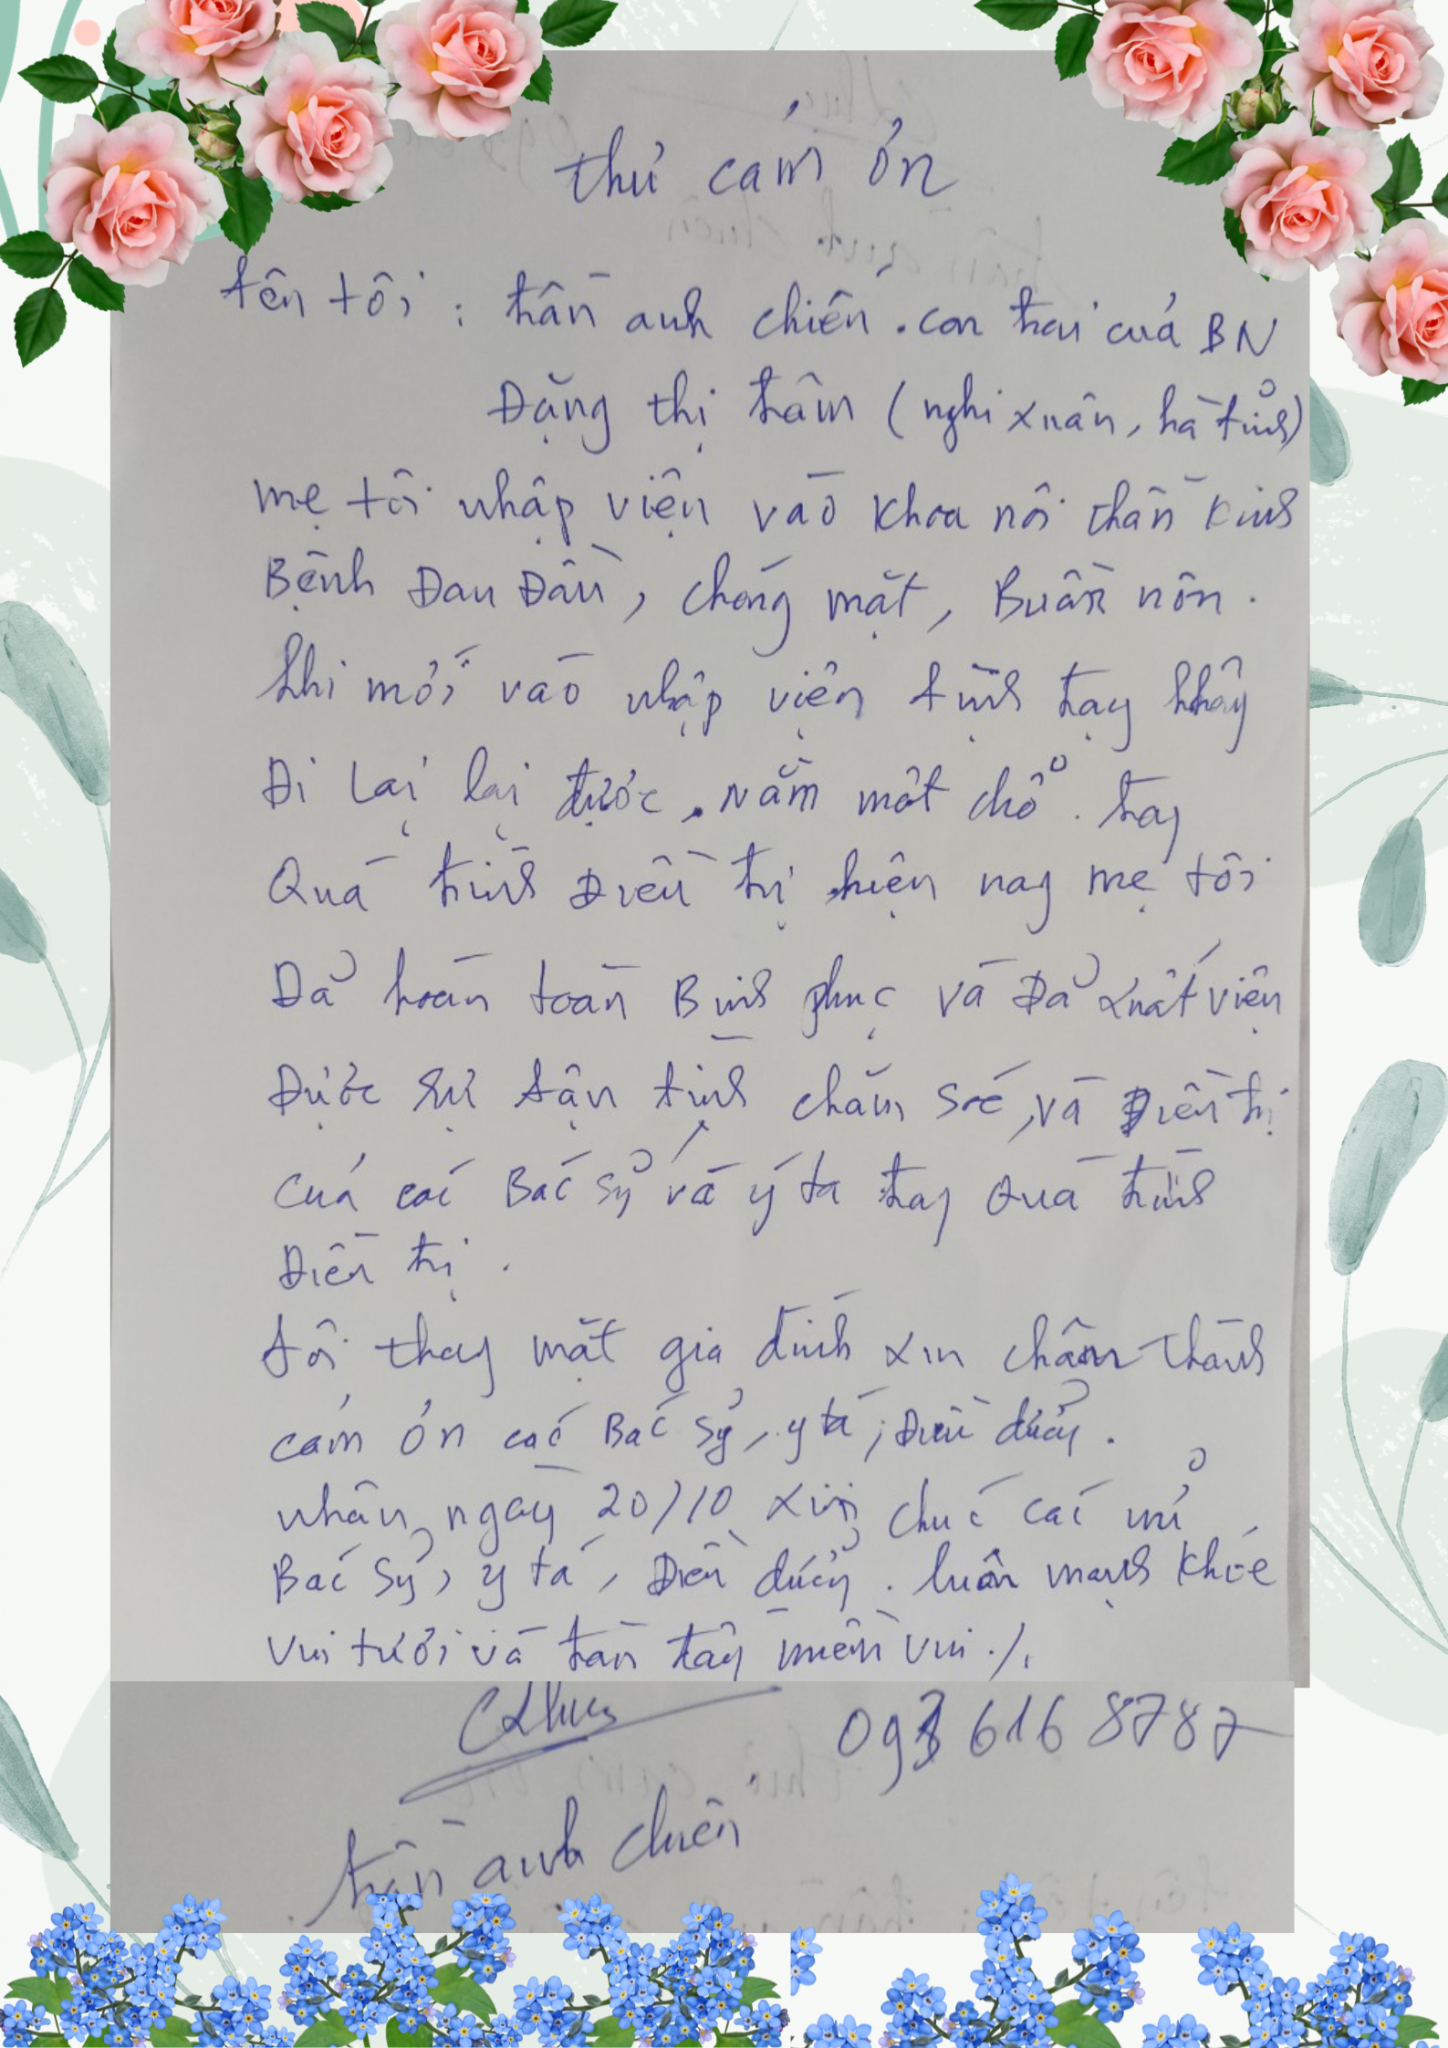 thư cảm ơn
tên tôi : trần anh chiến . con trai của BN
Đặng thị tâm ( nghi xuân, hà tĩnh)
mẹ tôi nhập viện vào khoa nôi thần kinh
Bệnh Đau Đầu, chóng mặt, Buồn nôn .
khi mới vào nhập viện tình trạy khây
Đi lại lại được . nằm một chổ . tray
Quá trình Điều trị hiện nay mẹ tôi
Đả hoàn toàn Bình phục và Đả xuất viện
Được sự tận tình chăm sóc, và Điều trị
Của các Bác sỷ và y tá tray Quá trình
Điều trị .
tôi thay mặt gia đình xin chân thành
cảm ơn các Bác sỷ, y tá, Điều dưởy .
nhân ngày 20/10 xin chúc các nử
Bác sỷ, y tá, Điều dưởy . luôn mạnh khỏe
vui tươi và tràn tây niềm vui ./.
093 616 8787
trần anh chiến